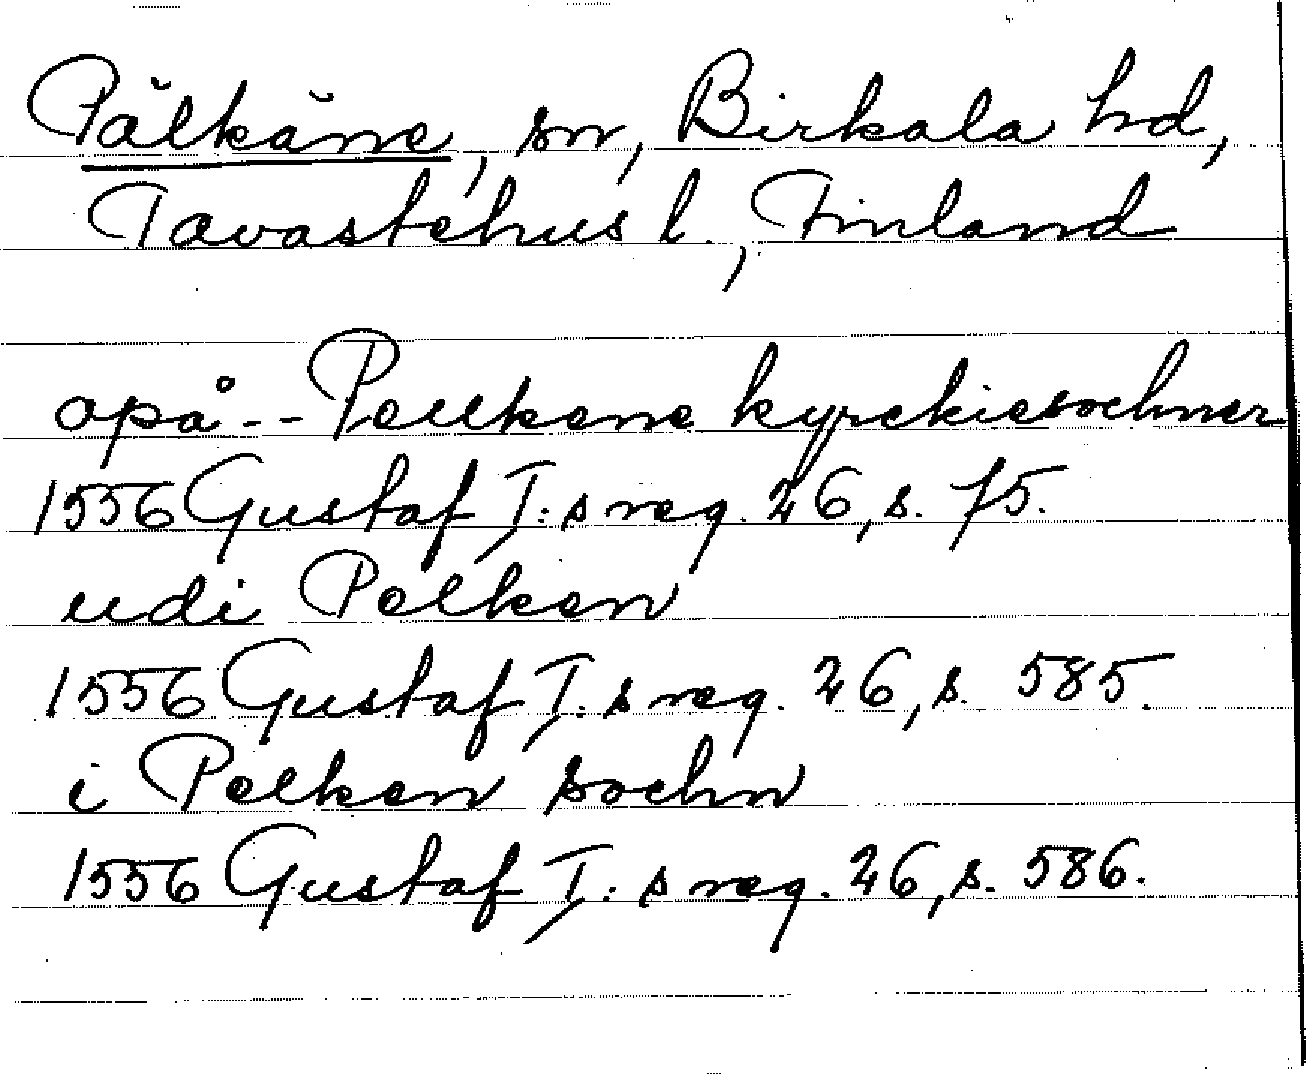 Pälkäne, sn, Birkala hd,
Tavastehus l., Finland
opå -- Pellkene kyrckiesochner
1556 Gustaf I:s reg. 26, s. 75.
udi Pelken
1556 Gustaf I:s reg. 26, s. 585.
i Pelken sochn
1556 Gustaf I:s reg. 26, s. 586.